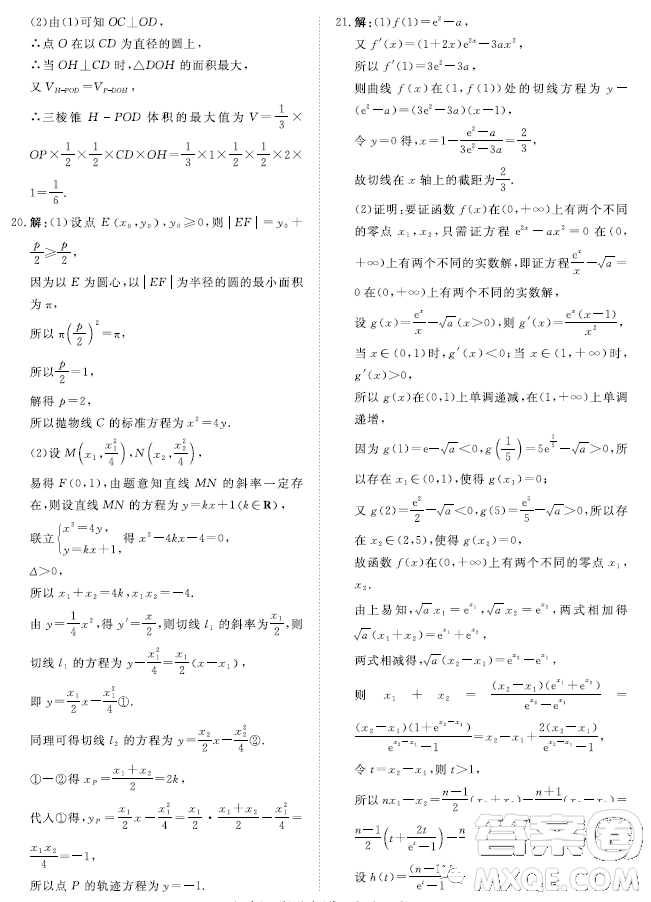 (2)由(1)可知 OC⊥OD,
∴点 O 在以 CD 为直径的圆上,
∴当 OH⊥CD 时,△DOH 的面积最大,
又 V_{H-POD}=V_{P-DOH},
∴三棱锥 H-POD 体积的最大值为 V=\frac{1}{3}×
OP×\frac{1}{2}×\frac{1}{2}×CD×OH=\frac{1}{3}×1×\frac{1}{2}×\frac{1}{2}×2×
1=\frac{1}{6}.
20.解:(1)设点 E(x₀,y₀),y₀≥0,则|EF|=y₀+
\frac{p}{2}≥\frac{p}{2},
因为以 E 为圆心,以|EF|为半径的圆的最小面积
为 π,
所以 π(\frac{p}{2})²=π,
所以\frac{p}{2}=1,
解得 p=2,
所以抛物线 C 的标准方程为 x²=4y.
(2)设 M(x₁,\frac{x₁²}{4}),N(x₂,\frac{x₂²}{4}),
易得 F(0,1),由题意知直线 MN 的斜率一定存
在,则设直线 MN 的方程为 y=kx+1(k∈R),
联立{x²=4y, y=kx+1, 得 x²-4kx-4=0,
Δ>0,
所以 x₁+x₂=4k,x₁x₂=-4.
由 y=\frac{1}{4}x²,得 y′=\frac{x}{2},则切线 l₁ 的斜率为\frac{x₁}{2},则
切线 l₁ 的方程为 y-\frac{x₁²}{4}=\frac{x₁}{2}(x-x₁),
即 y=\frac{x₁}{2}x-\frac{x₁²}{4}①.
同理可得切线 l₂ 的方程为 y=\frac{x₂}{2}x-\frac{x₂²}{4}②.
①-②得 x_P=\frac{x₁+x₂}{2}=2k,
代入①得,y_P=\frac{x₁}{2}x-\frac{x₁²}{4}=\frac{x₁}{2}·\frac{x₁+x₂}{2}-\frac{x₁²}{4}=
\frac{x₁x₂}{4}=-1,
所以点 P 的轨迹方程为 y=-1.
21.解:(1)f(1)=e²-a,
又 f′(x)=(1+2x)e^{2x}-3ax²,
所以 f′(1)=3e²-3a,
则曲线 f(x)在(1,f(1))处的切线方程为 y-
(e²-a)=(3e²-3a)(x-1),
令 y=0 得,x=1-\frac{e²-a}{3e²-3a}=\frac{2}{3},
故切线在 x 轴上的截距为\frac{2}{3}.
(2)证明:要证函数 f(x)在(0,+∞)上有两个不同
的零点 x₁,x₂,只需证方程 e^{2x}-ax²=0 在(0,
+∞)上有两个不同的实数解,即证方程\frac{e^x}{x}-√a=
0 在(0,+∞)上有两个不同的实数解,
设 g(x)=\frac{e^x}{x}-√a(x>0),则 g′(x)=\frac{e^x(x-1)}{x²},
当 x∈(0,1)时,g′(x)<0;当 x∈(1,+∞)时,
g′(x)>0,
所以 g(x)在(0,1)上单调递减,在(1,+∞)上单调
递增,
因为 g(1)=e-√a<0,g(\frac{1}{5})=5e^{\frac{1}{5}}-√a>0,所
以存在 x₁∈(0,1),使得 g(x₁)=0;
又 g(2)=\frac{e²}{2}-√a<0,g(5)=\frac{e⁵}{5}-√a>0,所以存
在 x₂∈(2,5),使得 g(x₂)=0,
故函数 f(x)在(0,+∞)上有两个不同的零点 x₁,
x₂.
由上易知,√a x₁=e^{x₁},√a x₂=e^{x₂},两式相加得
√a(x₁+x₂)=e^{x₁}+e^{x₂},
两式相减得,√a(x₂-x₁)=e^{x₂}-e^{x₁},
则 x₁+x₂=\frac{(x₂-x₁)(e^{x₁}+e^{x₂})}{e^{x₂}-e^{x₁}}=
\frac{(x₂-x₁)(1+e^{x₂-x₁})}{e^{x₂-x₁}-1}=x₂-x₁+\frac{2(x₂-x₁)}{e^{x₂-x₁}-1},
令 t=x₂-x₁,则 t>1,
所以 nx₁-x₂=\frac{n-1}{2}(x₁+x₂)-\frac{n+1}{2}
\frac{n-1}{2}(t+\frac{2t}{e^t-1})
设 h(t)=
答案圈